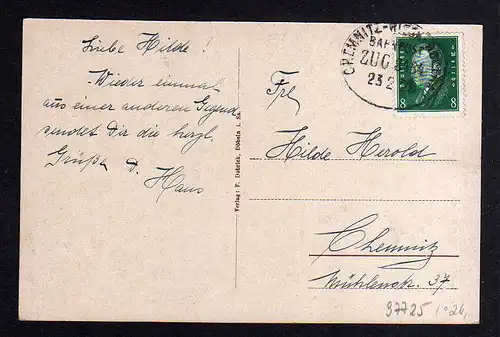 Liebe Hilde!
Wieder einmal
aus einer anderen Gegend
sendet Dir die herzl.
Grüße d. Hans
Verlag: P. Dobrick, Döbeln i. Sa.
CHEMNITZ
BAHN
ZUG
23 2
8 8
Frl
Hilde Herold
Chemnitz
Mühlenstr. 37
97725